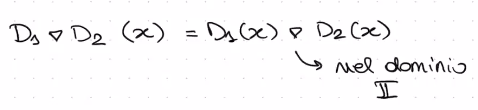 D₁ ▿ D₂ (x) = D₁(x) ▿ D₂(x)
↳ nel dominio
II